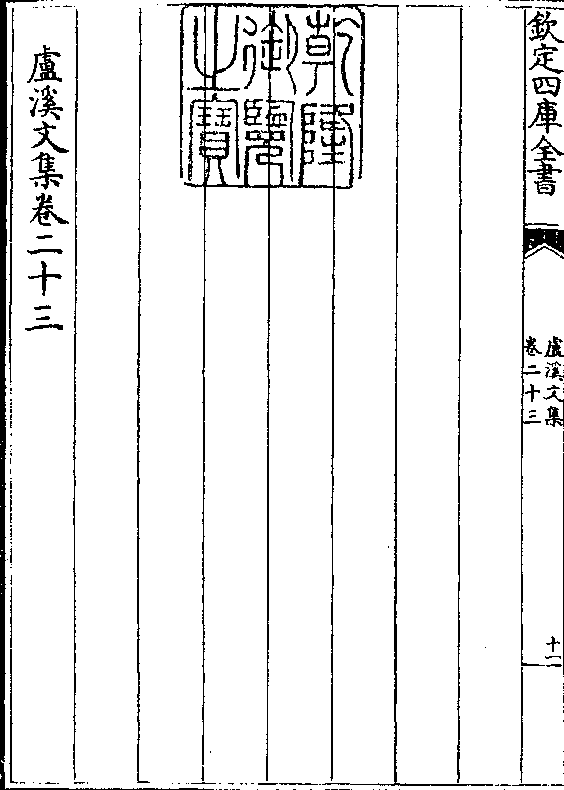 欽定四庫全書
盧溪文集
卷二十三
十一
乾隆
御覽
之寶
盧溪文集卷二十三